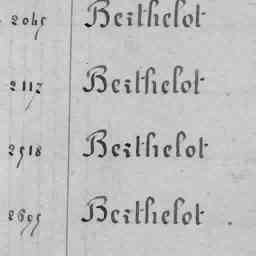 2065 Berthelot
2117 Berthelot
2518 Berthelot
2695 Berthelot